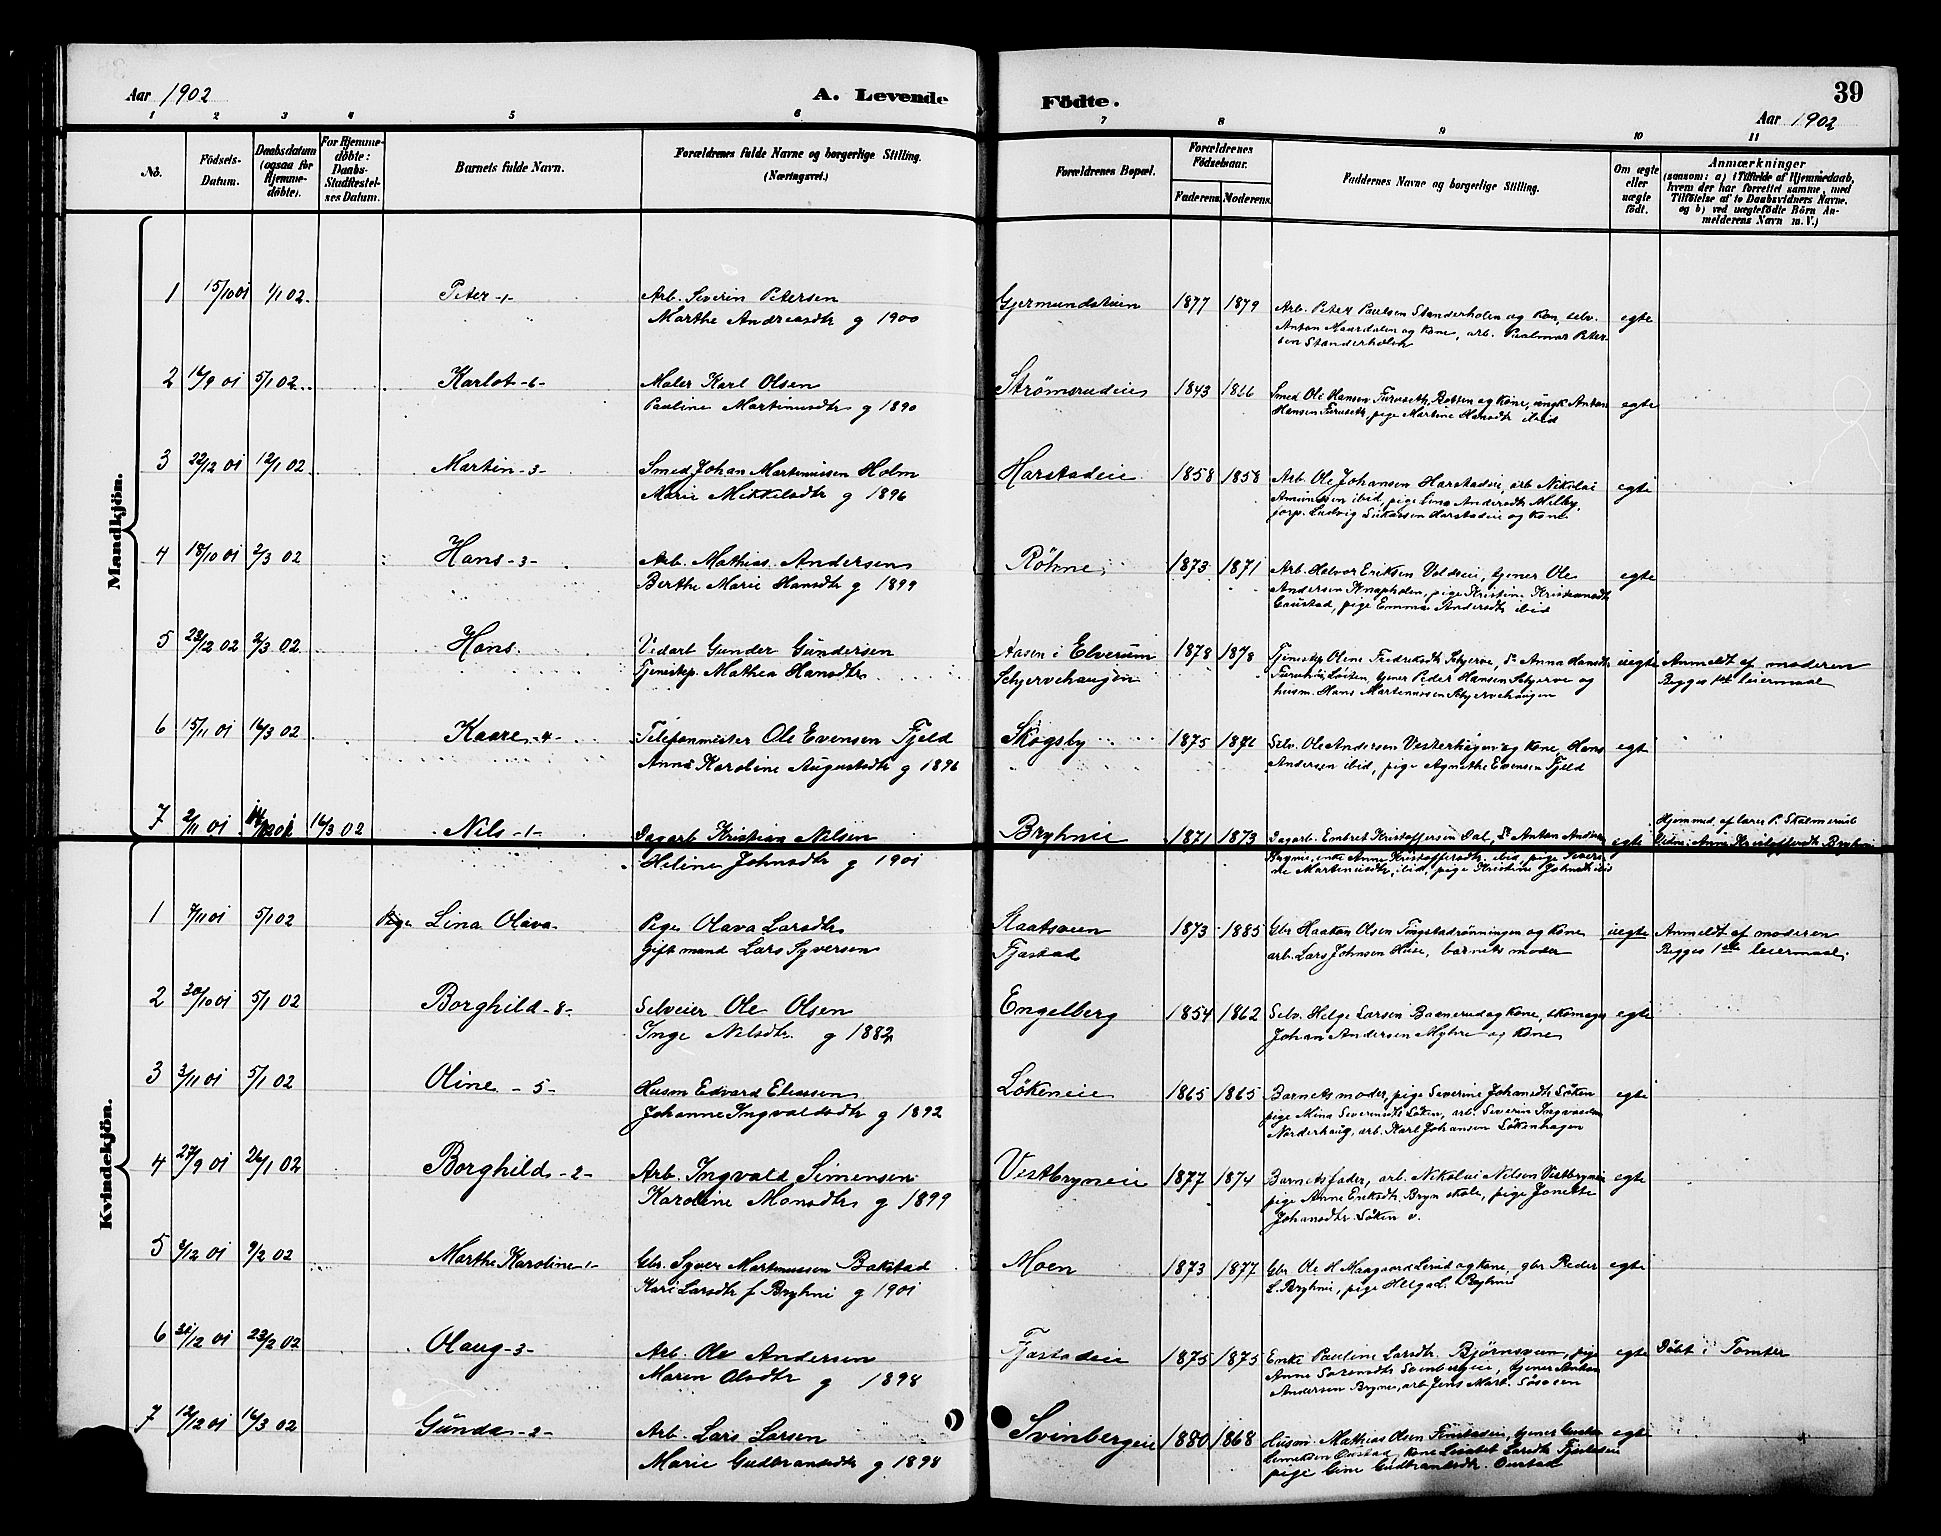 39
Aar 1902
A. Levende
Födte.
Aar 1902
1 2 3 4 5 6 7 8 9 10 11
No.
Födsels-
Datum.
Daabsdatum
(ogsaa for
Hjemme-
döbte).
For Hjemme-
döbte:
Daabs-
Stadfæstel-
ses Datum.
Barnets fulde Navn.
Forældrenes fulde Navne og borgerlige Stilling.
(Næringsvei.)
Forældrenes Bopæl.
Forældrenes
Födselsaar.
Faderens. Moderens.
Faddernes Navne og borgerlige Stilling.
Om ægte
eller
uægte
født.
Anmærkninger
(saasom: a) i Tilfælde af Hjemmedaab,
hvem der har forrettet samme, med
Tilföielse af to Daabsvidners Navne,
og b) ved uægtefödte Börn An-
melderens Navn m. V.)
Mandkjön.
1 15/10 01 1/1 02 Peter -1- Arb. Severin Petersen Gjermundstuen 1877 1879 Arb. Peter Paulsen Standerholen og Kon, selv. egte
Marthe Andreasdtr g 1900 Anton Maurdalen og Kone, arb. Paalmar Peter-
sen Standerholen
2 16/9 01 5/1 02 Karlot -6- Maler Karl Olsen Strømsrudeie 1843 1866 Smed Ole Hansen Furuseth, Rotten og Kone, ungk Anton egte
Pauline Martinusdtr g 1890 Hansen Furuseth, pige Martine Hansdtr ibid
3 22/12 01 12/1 02 Martin -3- Smed Johan Martinussen Holm Harstadeie 1858 1858 Arb. Ole Johansen Harstadeie, arb Nikolai egte
Marie Mikkelsdtr g 1896 Amundsen ibid, pige Lina Andersdtr Milby,
forp. Ludvig Harstadeie og Kone
4 18/10 01 2/3 02 Hans -3- Arb. Mathias Andersen Röhne 1873 1871 Arb. Halvor Eriksen Voldeie, tjener Ole egte
Berthe Marie Hansdtr g 1899 Andersen Knapholen, pige Kristine Kristiansdtr
Gaustad, pige Emma Andersdtr ibid
5 23/12 02 2/3 02 Hans Vedarb Gunder Gundersen Aasen i Elverum 1878 1878 Tjenestep Oline Fredriksdtr Skjerve, do Anna Hansdtr uegte Anmeldt af moderen
Tjenestep. Mathea Hansdtr Skjervehaugen Løiten, tjener Peder Hansen Skjerve og Begges 1ste leiermaal
husm. Hans Martinussen Skjervehaugen
6 15/11 01 16/3 02 Kaare -4- Telefonmester Ole Evensen Fjeld Skogsby 1875 1876 Selv. Ole Andersen Vesterhagen og Kone, Hans egte
Anna Karoline Augustsdtr g 1896 Andersen ibid, pige Agnethe Evensen Fjeld
7 2/11 01 16/3 02 Nils -1- Dagarb Kristian Nilsen Bryhnie 1871 1873 Dagarb. Embret Kristoffersen Dal, do Anton Anders egte Hjemmed. af lærer P. Skalmerud
Heline Johnsdtr g 1901 Brynie, enke Anne Kristoffersdtr ibid, pige Severi- Vidne: Anne Kristoffersdtr Bryhni
ne Martinusdtr, ibid, pige Kristine Johnsdtr ibid
Kvindekjön.
1 7/11 01 5/1 02 Lina Olava Pige Olava Larsdtr Raatsveen 1873 1885 Gbr Haakon Olsen Tingstadrönningen og Kone uegte Anmeldt af moderen
Gift mand Lars Syversen Fjæstad arb. Lars Johnsen Huse, barnets moder Begges 1ste leiermaal
2 30/10 01 5/1 02 Borghild -8- Selveier Ole Olsen Engelberg 1854 1862 Selv. Helge Larsen Banerud og Kone, skomager egte
Inge Nilsdtr g 1882 Johan Andersen Myhre og Kone
3 3/11 01 5/1 02 Oline -5- Husm Edvard Eliassen Lökeneie 1865 1865 Barnets moder, pige Severine Johansdtr Löken egte
Johanne Ingvaldsdtr g 1892 pige Mina Severinsdtr Löken, arb. Severin Ingvaldsen
Norderhaug, arb. Karl Johansen Lökenhagen
4 27/9 01 26/1 02 Borghild -2- Arb. Ingvald Simensen Vestbryneie 1877 1874 Barnets fader, arb. Nikolai Nilsen Vestbrynie egte
Karoline Monsdtr g 1899 pige Anne Eriksdtr Bryn skole, pige Jonette
Johansdtr Löken v.
5 3/12 01 9/2 02 Marthe Karoline -1- Gbr. Syver Martinussen Bakstad Moen 1873 1877 Gbr Ole H Maagaard Lerud og Kone, gbr Peder egte
Kari Larsdtr f Bryhni g 1901 L. Bryhni, pige Helga L. Bryhni
6 31/12 01 23/2 02 Olaug -3- Arb. Ole Andersen Fjæstadeie 1875 1875 Enke Pauline Larsdtr Björnsveen, pige egte Döbt i Tomter
Maren Olsdtr g 1898 Anne Sörensdtr Svenbergeie, tjener Anton
Andersen Brynie, arb Jens Mart. Sösosen
7 12/12 01 16/3 02 Gunda -2- Arb. Lars Larsen Svinbergeie 1880 1868 Husm. Mathias Olsen Finstadeie, tjener egte
Marie Gudbrandsdtr g 1898 Oustad, Kone Lisabet Larsdtr Fjæstadeie
pige Gine Gudbrandsdtr. Oustad